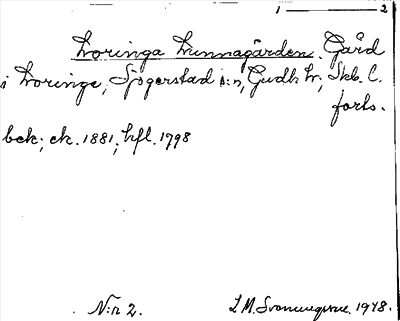 1 — 2
Loringa Sunnagården. Gård
i Loringe, Sjogerstad s:n, Gudh. hr, Skb. l.
forts.
bek; ek. 1881; hfl. 1798
N:r 2.
1948.